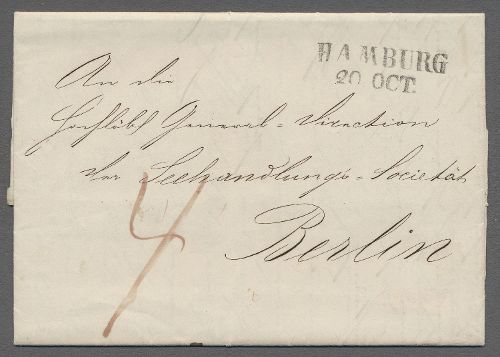 HAMBURG
20 OCT.
An die
Hochlöbl General-Direction
der Seehandlungs-Societät
Berlin
4